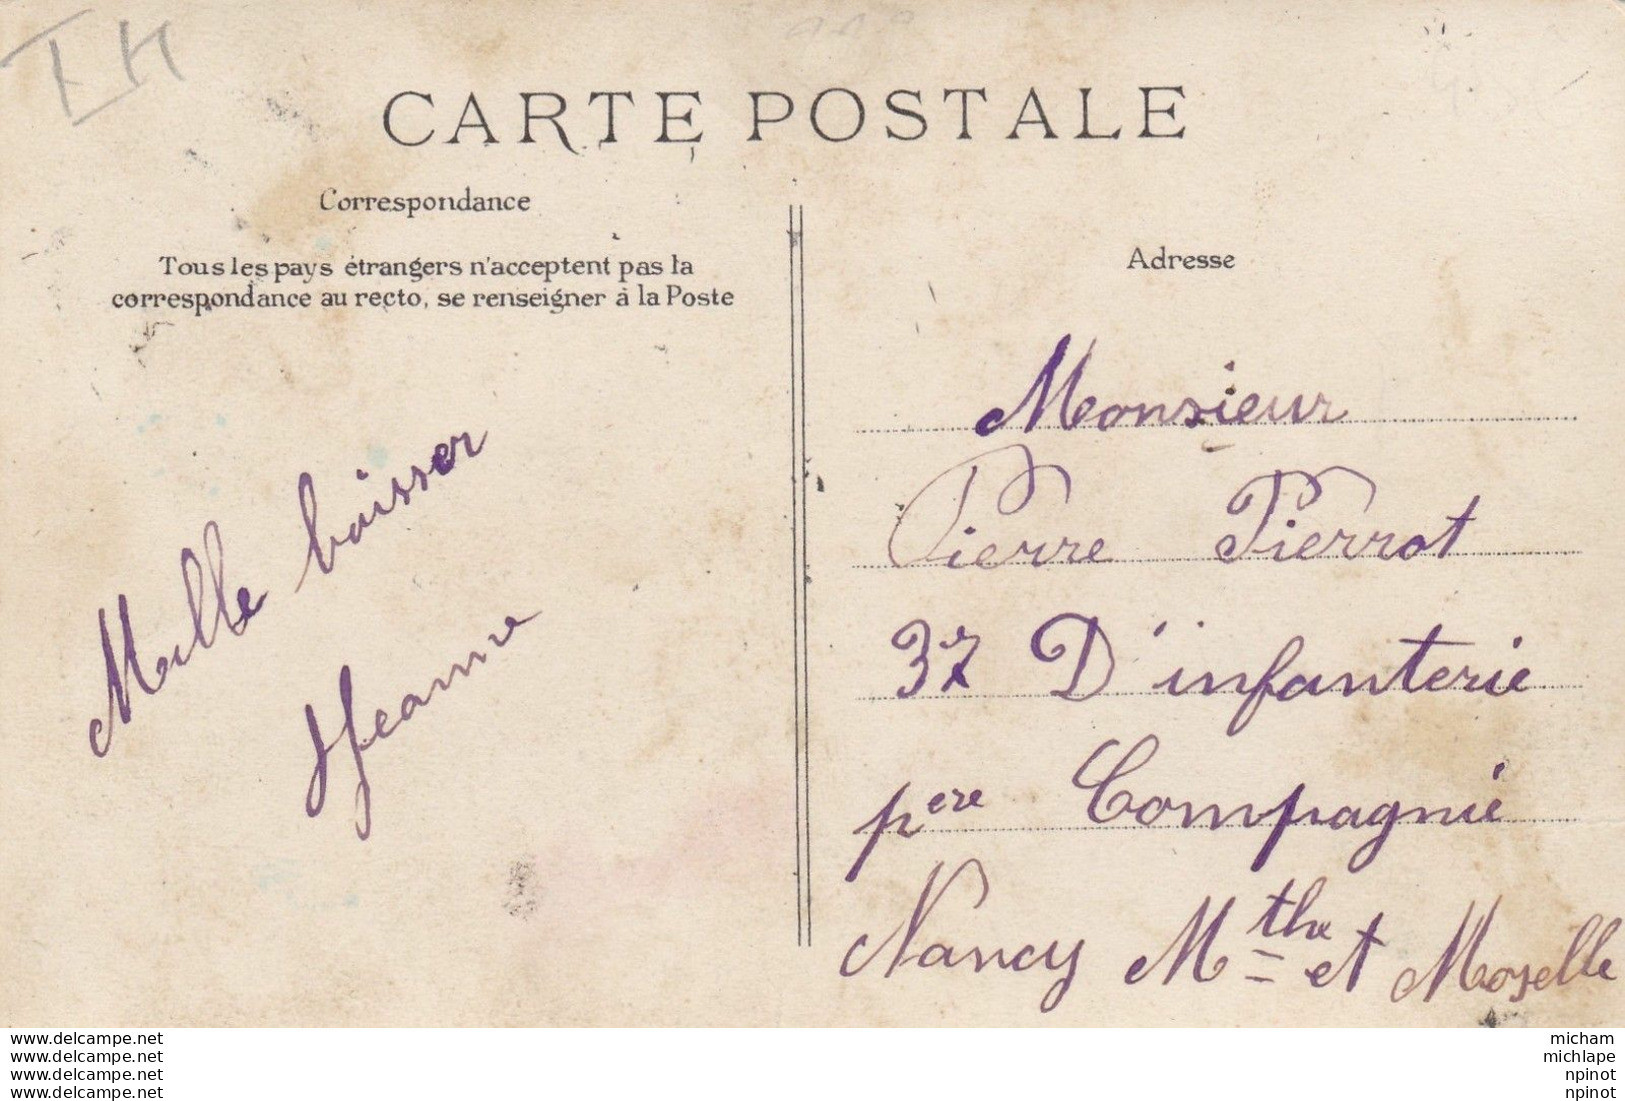 CARTE POSTALE
Correspondance
Tous les pays étrangers n'acceptent pas la
correspondance au recto, se renseigner à la Poste
Mille baisser
Jeanne
Adresse
Monsieur
Pierre Pierrot
37 D'infanterie
pere Compagnie
Nancy Mthe et Moselle
www.delcampe.net
www.delcampe.net
www.delcampe.net
www.delcampe.net
micham
michlape
npinot
npinot